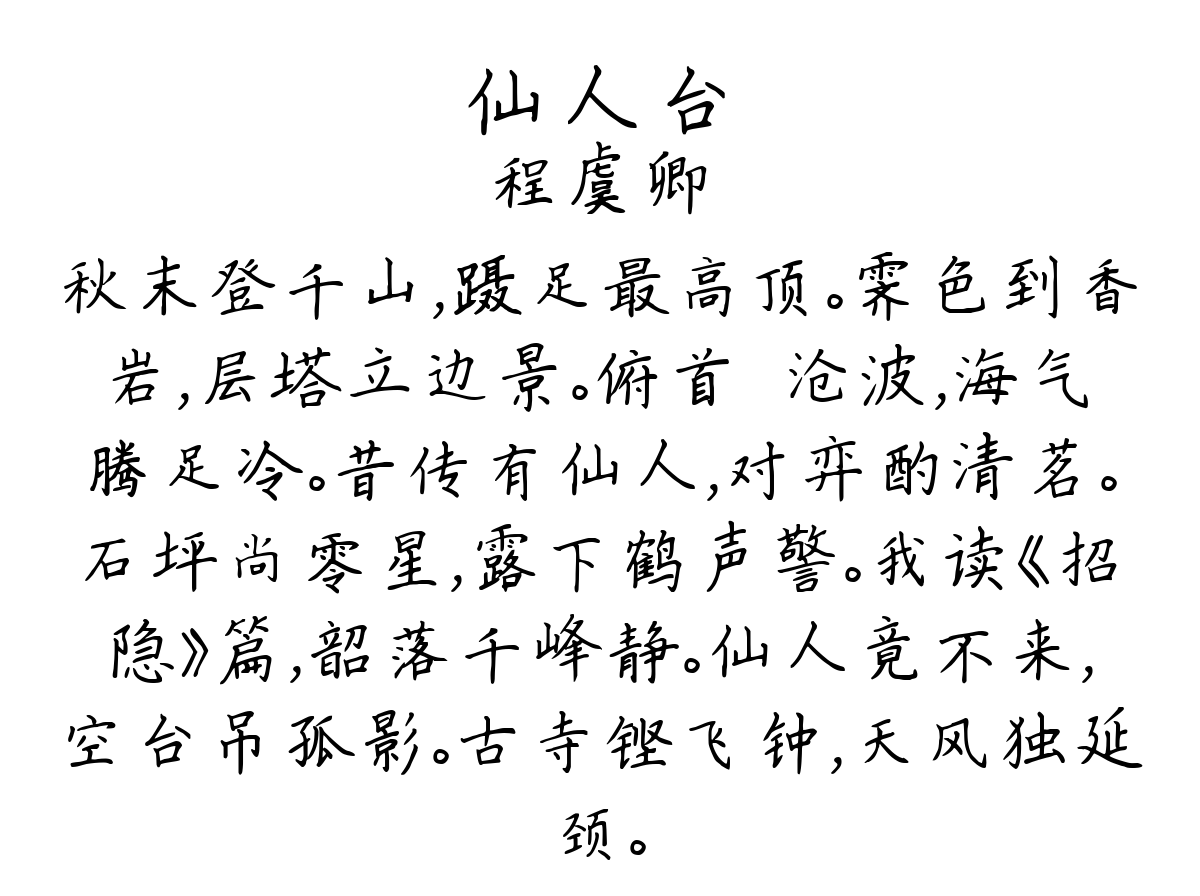 仙人台
程虞卿
秋末登千山,蹑足最高顶。霁色到香
岩,层塔立边景。俯首 沧波,海气
腾足冷。昔传有仙人,对弈酌清茗。
石坪尚零星,露下鹤声警。我读《招
隐》篇,韶落千峰静。仙人竟不来,
空台吊孤影。古寺铿飞钟,天风独延
颈。